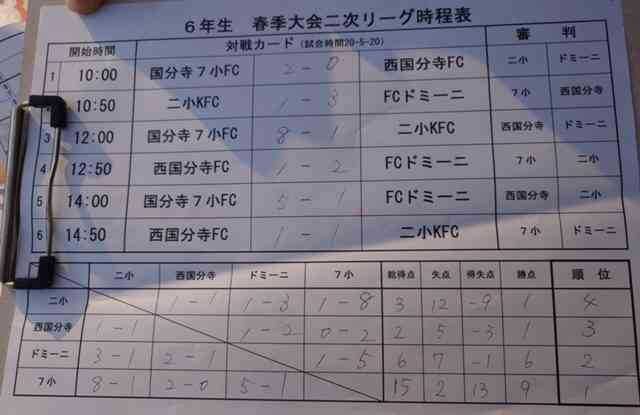 6年生 春季大会二次リーグ時程表
開始時間 対戦カード (試合時間20-5-20) 審判
1 10:00 国分寺7小FC 2 - 0 西国分寺FC 二小 ドミーニ
10:50 二小KFC 1 - 3 FCドミーニ 7小 西国分寺
3 12:00 国分寺7小FC 8 - 1 二小KFC 西国分寺 ドミーニ
4 12:50 西国分寺FC 1 - 2 FCドミーニ 7小 二小
5 14:00 国分寺7小FC 5 - 1 FCドミーニ 西国分寺 二小
6 14:50 西国分寺FC 1 - 1 二小KFC 7小 ドミーニ
二小 西国分寺 ドミーニ 7小 総得点 失点 得失点 勝点 順位
二小 1 - 1 1 - 3 1 - 8 3 12 -9 1 4
西国分寺 1 - 1 1 - 2 0 - 2 2 5 -3 1 3
ドミーニ 3 - 1 2 - 1 1 - 5 6 7 -1 6 2
7小 8 - 1 2 - 0 5 - 1 15 2 13 9 1